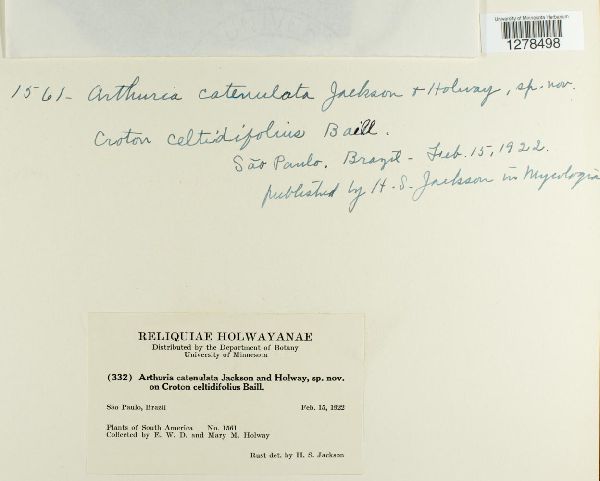 University of Minnesota Herbarium
1278498
1561- Arthuria catenulata Jackson & Holway, sp. nov.
Croton celtidifolius Baill.
São Paulo, Brazil - Feb. 15, 1922.
published by H. S. Jackson in Mycologia
RELIQUIAE HOLWAYANAE
Distributed by the Department of Botany
University of Minnesota
(332) Arthuria catenulata Jackson and Holway, sp. nov.
on Croton celtidifolius Baill.
Sao Paulo, Brazil Feb. 15, 1922
Plants of South America No. 1561
Collected by E. W. D. and Mary M. Holway
Rust det. by H. S. Jackson